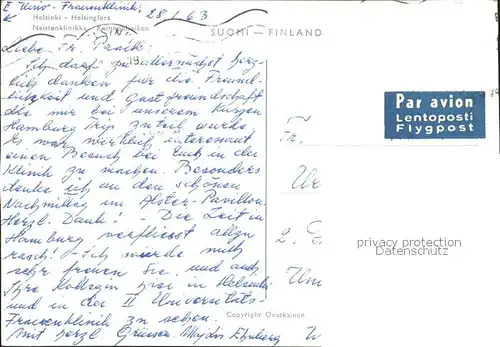 II Univ.-Frauenklinik
28/1 63
Helsinki - Helsingfors
Naistenklinikka -
SUOMI — FINLAND
Liebe Fr.
Ich darf zu allernächst herz-
lich danken für die Freund-
lichkeit und Gastfreundschaft
die mir bei unserem kurzen
Hamburg Trip zuteil wurde
Es war wirklich interessant
einen Besuch bei Euch in der
Klinik zu machen. Besonders
danke ich an den schönen
Nachmittag im Alster-Pavillon
Herzl. Dank! - Die Zeit in
Hamburg verfliesst allzu
rasch! - Ich würde mich
sehr freuen Sie, und auch
Ihre Kollegen hier in Helsinki
und in der II Universitäts-
Frauenklinik zu sehen.
Mit herzl. Grüssen
Par avion
Lentoposti
Flygpost
Fr.
2.
privacy protection
Datenschutz
Copyright Ovatkainen